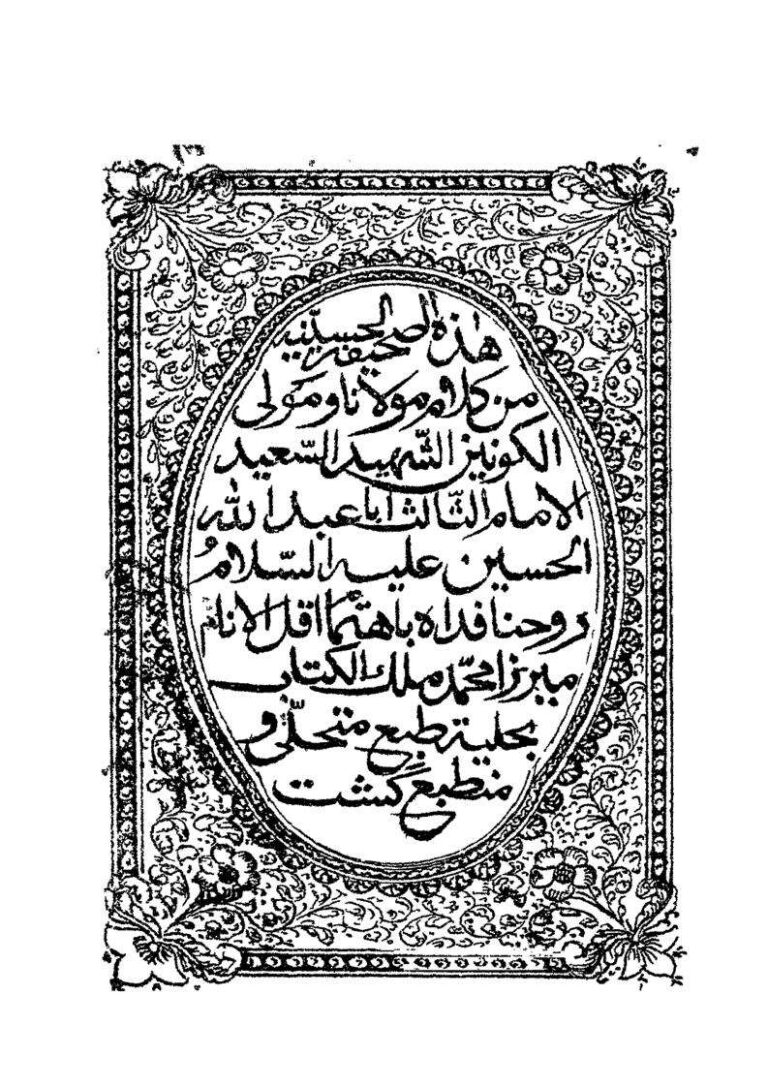 هذه الصحيفة الحسينيه
من كلام مولانا و مولى
الكونين الشّهيد السّعيد
الامام الثّالث ابا عبد الله
الحسين عليه السّلامُ
روحنا فداه باهتمام اقل الانام
ميرزا محمّد ملك الكتاب
بحلية طبع متحلّى و
منطبع گشت